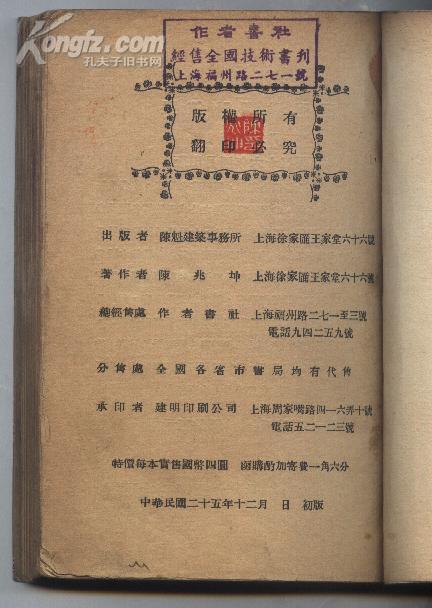 Kongfz.com
孔夫子旧书网
作者書社
經售全國技術書刊
上海福州路二七一號
版權所有
翻印必究
出版者 陳魁建築事務所 上海徐家匯王家堂六十六號
著作者 陳兆坤 上海徐家匯王家堂六十六號
總經售處 作者書社 上海福州路二七一至三號
電話九四二五九號
分售處 全國各省市書局均有代售
承印者 建明印刷公司 上海周家嘴路四一六弄十號
電話五二一二三號
特價每本實售國幣四圓 函購酌加寄費一角六分
中華民國二十五年十二月 日 初版